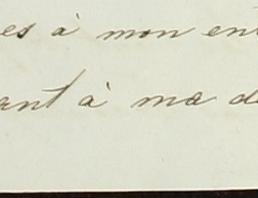 es à mon ent
ant à ma de